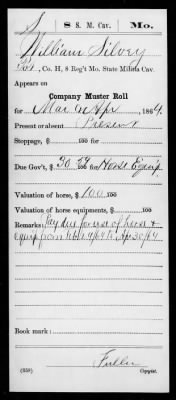 S | 8 S. M. Cav. | Mo.
William Silvey
Pvt, Co. H, 8 Reg't Mo. State Militia Cav.
Appears on
Company Muster Roll
for Mar & Apr, 1864.
Present or absent Present
Stoppage, $ 100 for
Due Gov't, $ 30 100 for Horse Equip
Valuation of horse, $ 100 100
Valuation of horse equipments, $ 100
Remarks: Pay due for use of horse &
equip from
Book mark:
Fuller
(358) Copyist.